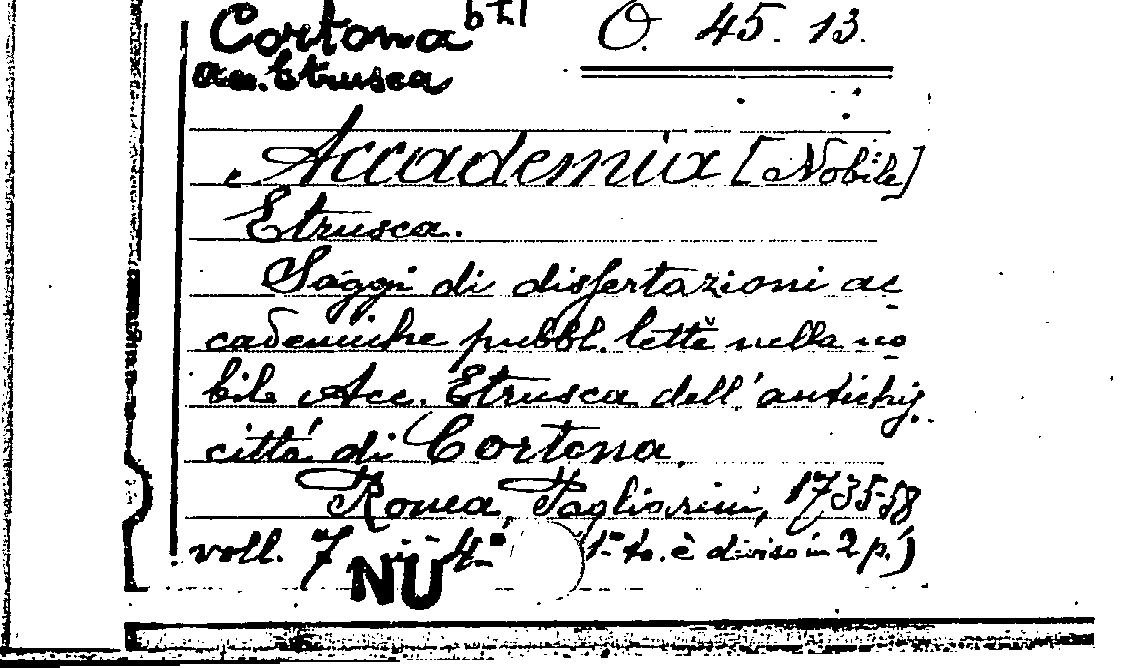 Cortona btl
O. 45. 13.
ac. Etrusca
Accademia [Nobile]
Etrusca.
Saggi di dissertazioni ac
cademiche pubbl. lette nella no
bile Acc. Etrusca dell'antichiss.
città di Cortona.
Roma, Pagliarini, 1735-58
voll. 7 in 4º (1º to. è diviso in 2 p.)
NU